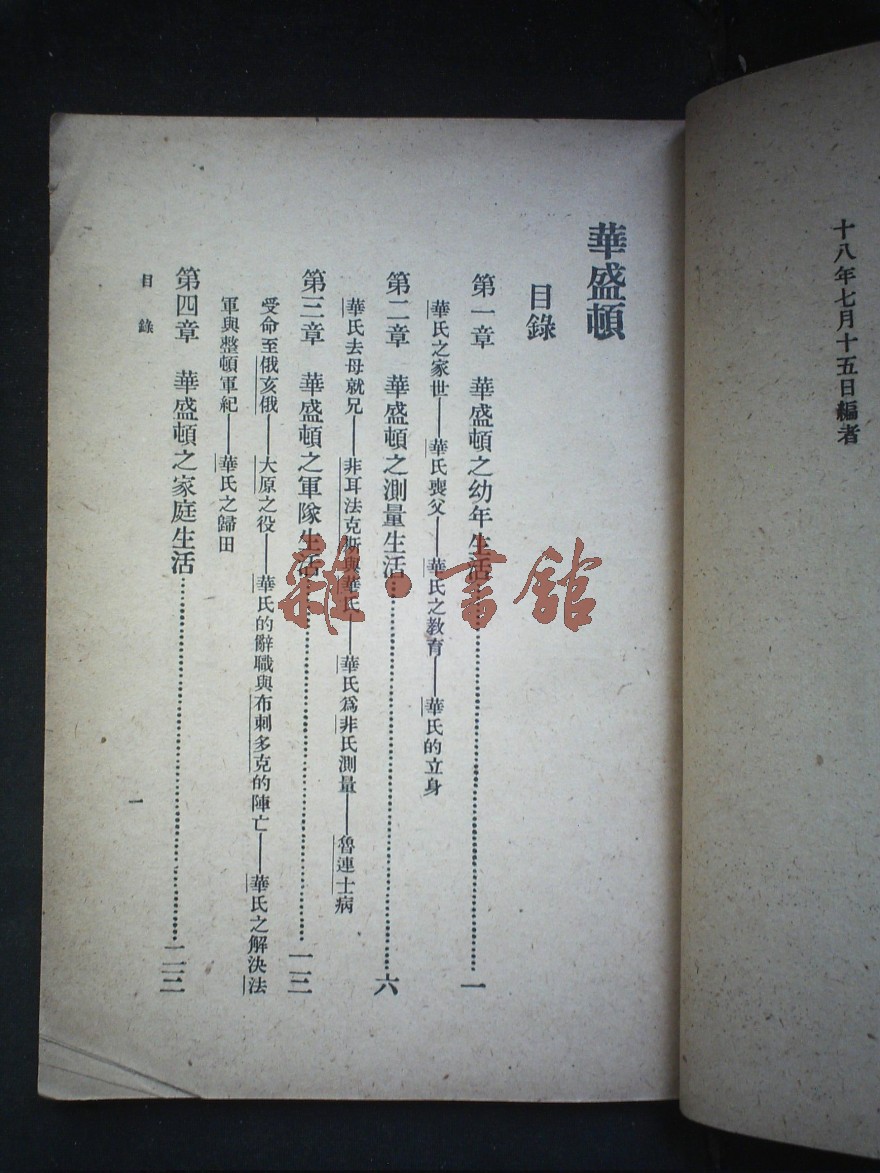 十八年七月十五日編者
華盛頓
目錄
第一章　華盛頓之幼年生活……一
華氏之家世——華氏喪父——華氏之教育——華氏的立身
第二章　華盛頓之測量生活……六
華氏去母就兄——非耳法克斯與華氏——華氏爲非氏測量——魯連士病
第三章　華盛頓之軍隊生活……一三
受命至俄亥俄——大原之役——華氏的辭職與布剌多克的陣亡——華氏之解決法
軍與整頓軍紀——華氏之歸田
第四章　華盛頓之家庭生活……二三
目錄
一
雜·書館